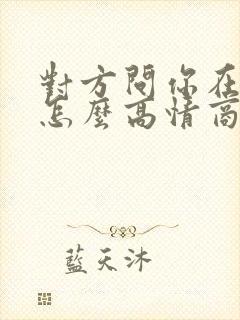 對方問你在
怎麼高情商
藍天沐